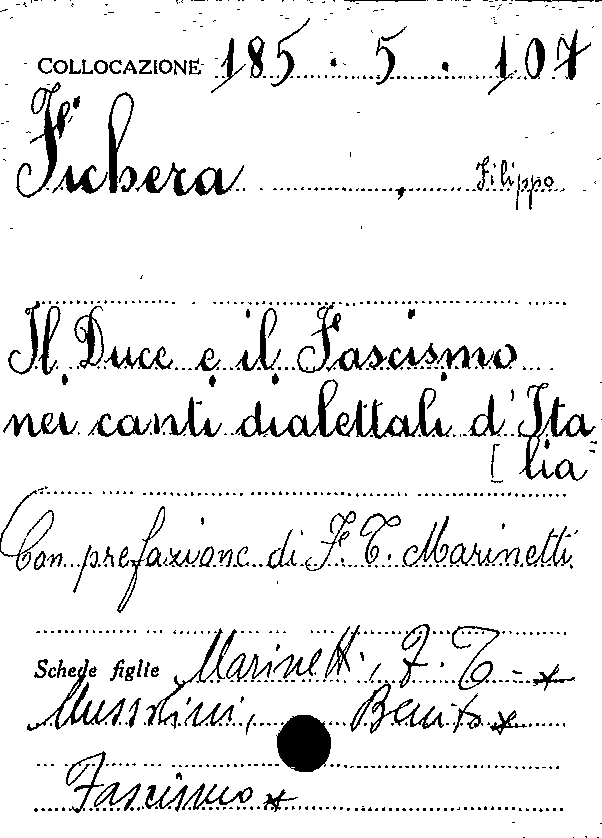 COLLOCAZIONE 185 . 5 . 107
Fichera , Filippo
Il Duce e il Fascismo
nei canti dialettali d'Ita=
[lia
Con prefazione di F. T. Marinetti.
Schede figlie Marinetti, F. T - *
Mussolini, Benito *
Fascismo *